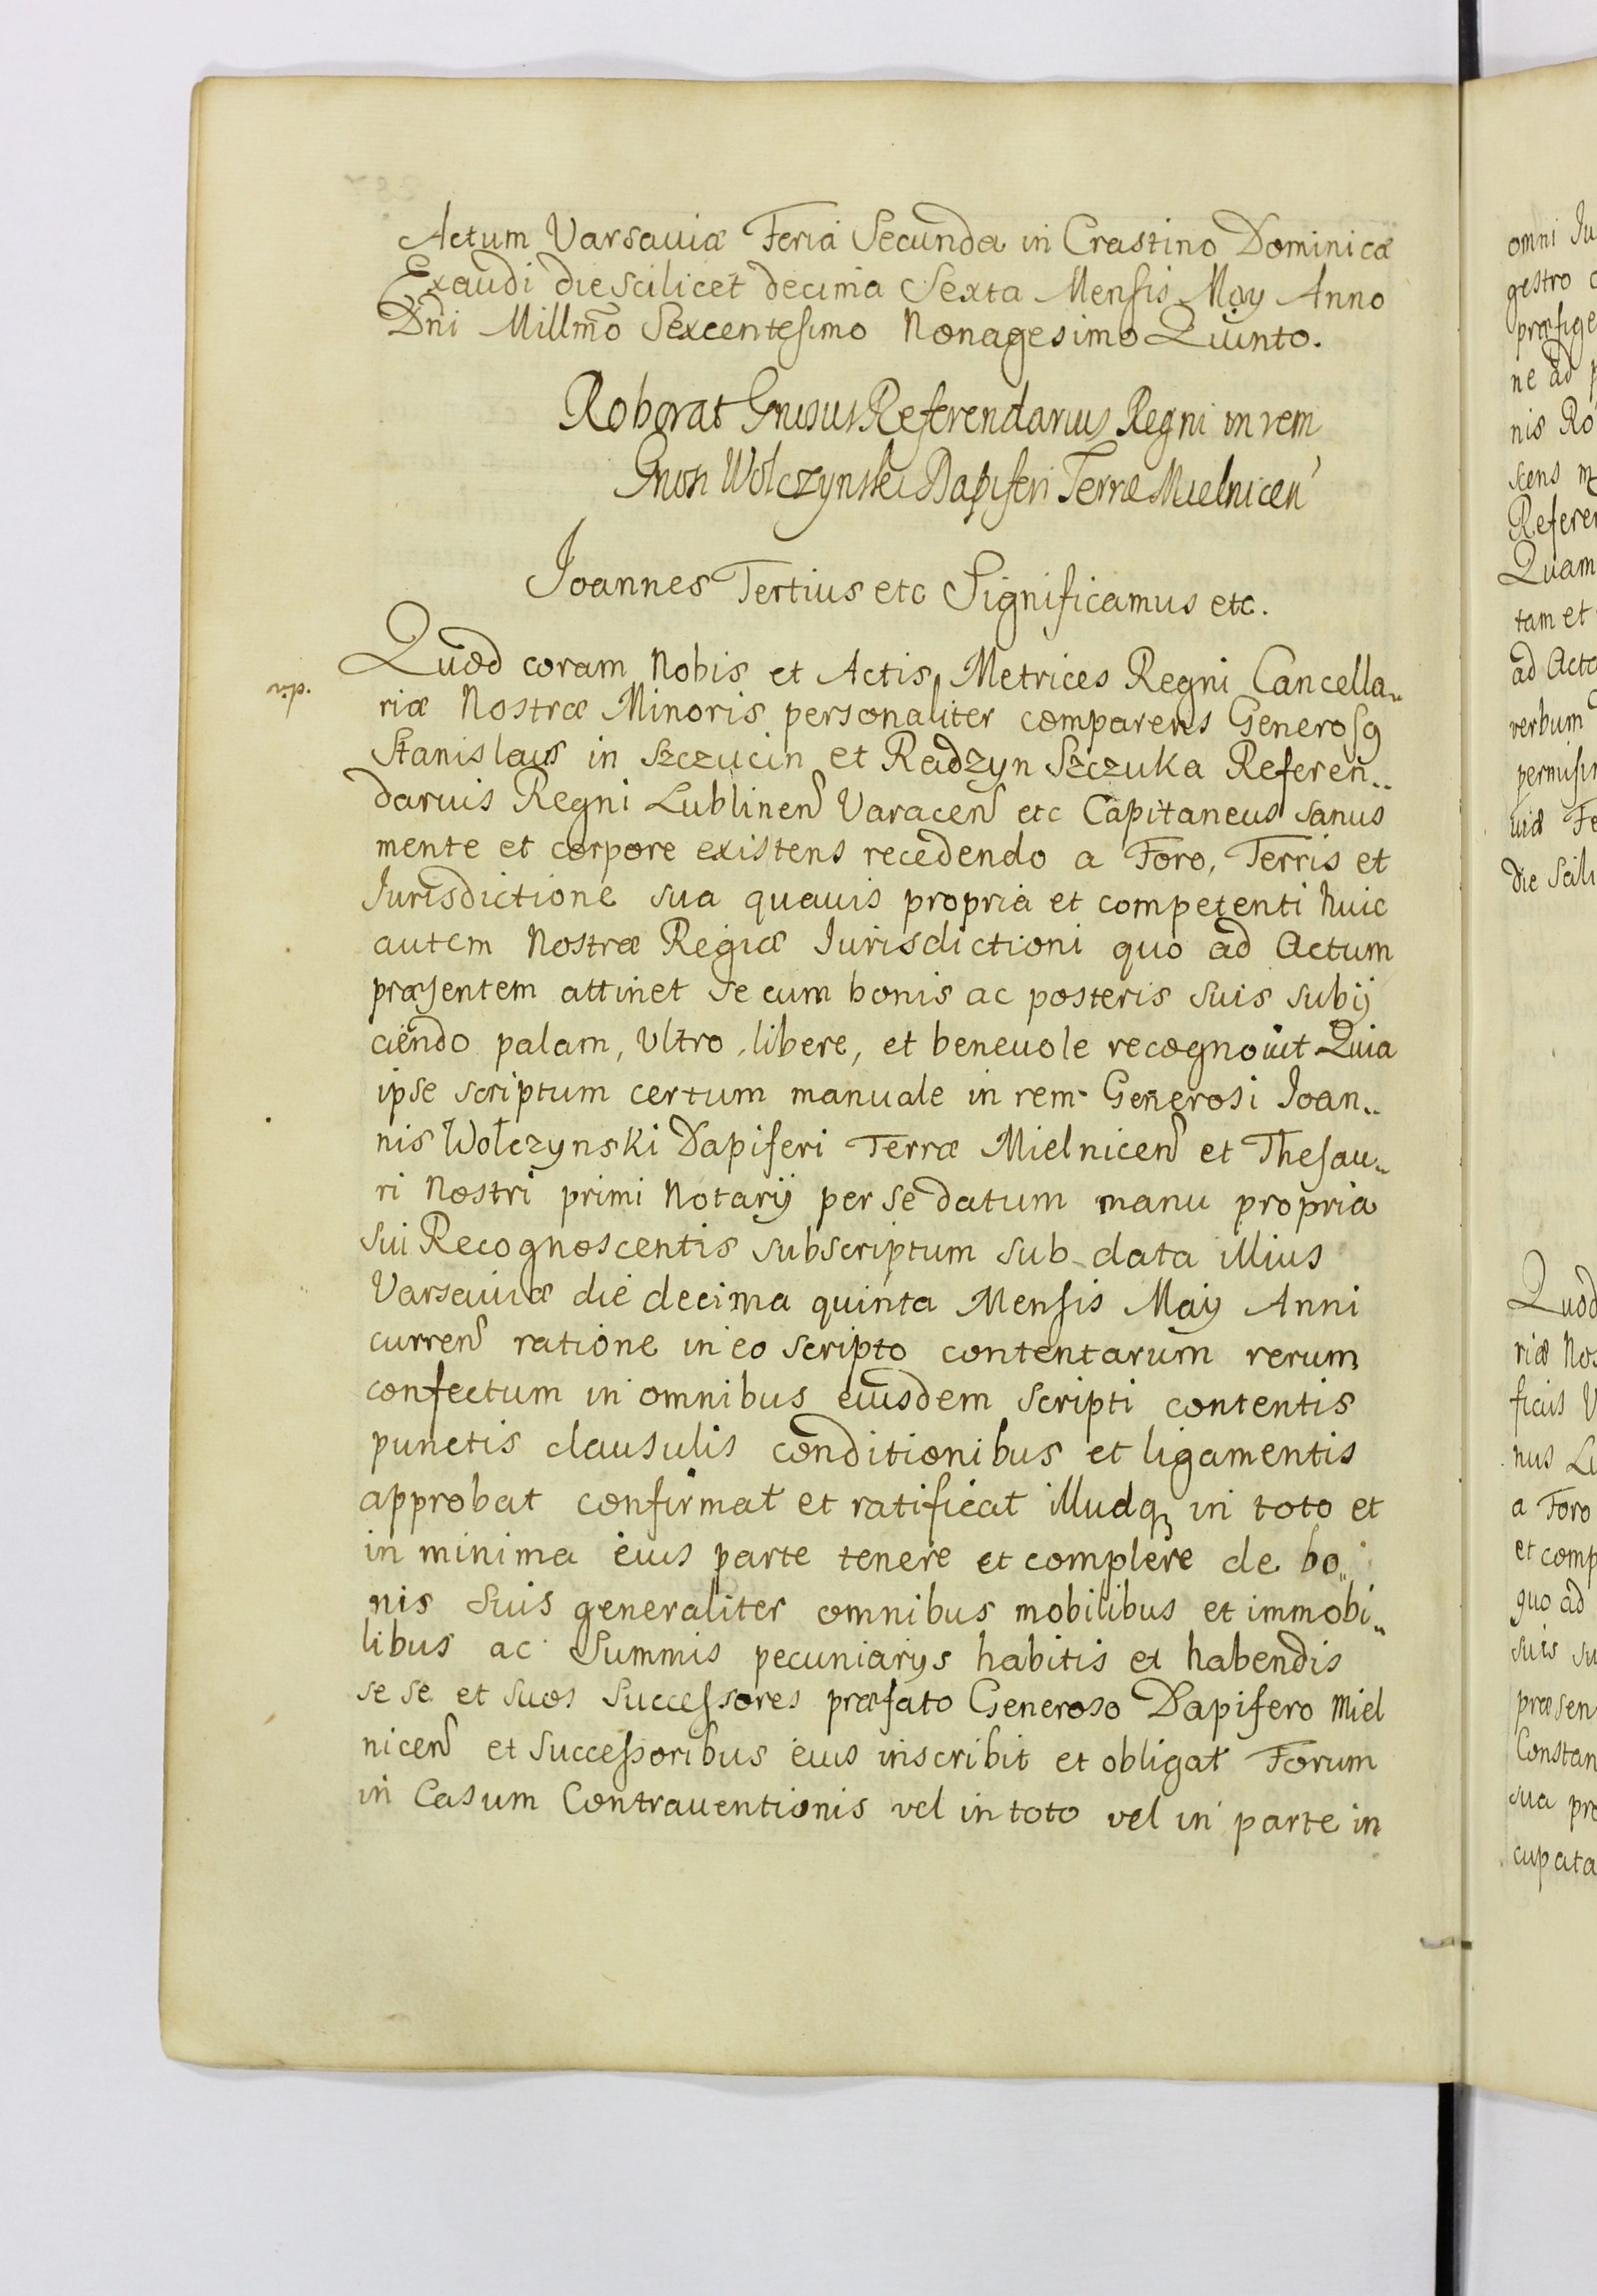 Actum Varsauiæ Feria Secunda in Crastino Dominicæ
Exaudi die scilicet decima Sexta Mensis May Anno
Dñi Millmo Sexcentesimo Nonagesimo Quinto.
Roborat Gnosus Referendarius Regni in rem
Gnosi Wolczynski Dapiferi Terræ Mielnicen
Joannes Tertius etc Significamus etc.
Quod coram Nobis et Actis Metrices Regni Cancella„
riæ Nostræ Minoris personaliter comparens Generosq
Stanislaus in Szczucin et Radzyn Szczuka Referen„
darius Regni Lublinen Varacen etc Capitaneus sanus
mente et corpore existens recedendo a Foro, Terris et
Jurisdictione sua quauis propria et competenti huic
autem Nostræ Regiæ Jurisdictioni quo ad Actum
præsentem attinet se cum bonis ac posteris suis subij
ciendo palam, Ultro, libere, et beneuole recognouit Quia
ipse scriptum certum manuale in rem Generosi Joan„
nis Wołczynski Dapiferi Terræ Mielnicen et Thesau„
ri Nostri primi Notarij per se datum manu propria
sui Recognoscentis subscriptum sub data illius
Varsauiæ die decima quinta Mensis Maij Anni
curren ratione in eo scripto contentarum rerum
confectum in omnibus eiusdem scripti contentis
punctis clausulis conditionibus et ligamentis
approbat confirmat et ratificat illudq in toto et
in minima eius parte tenere et complere de bo„
nis suis generaliter omnibus mobilibus et immobi„
libus ac Summis pecuniarijs habitis et habendis
se se et suos Successores præfato Generoso Dapifero Miel
nicen et Successoribus eius inscribit et obligat Forum
in Casum Contrauentionis vel in toto vel in parte in
omni Ju
gestro
præfige
ne ad p
nis Ro
scens m
Refere
Quam
tam et
ad Acta
verbum
permisi
uiæ Fe
die Scili
Quod
riæ Nos
ficis
nus
a Foro
et comp
quo ad
suis su
præsen
Constan
sua pro
cupata